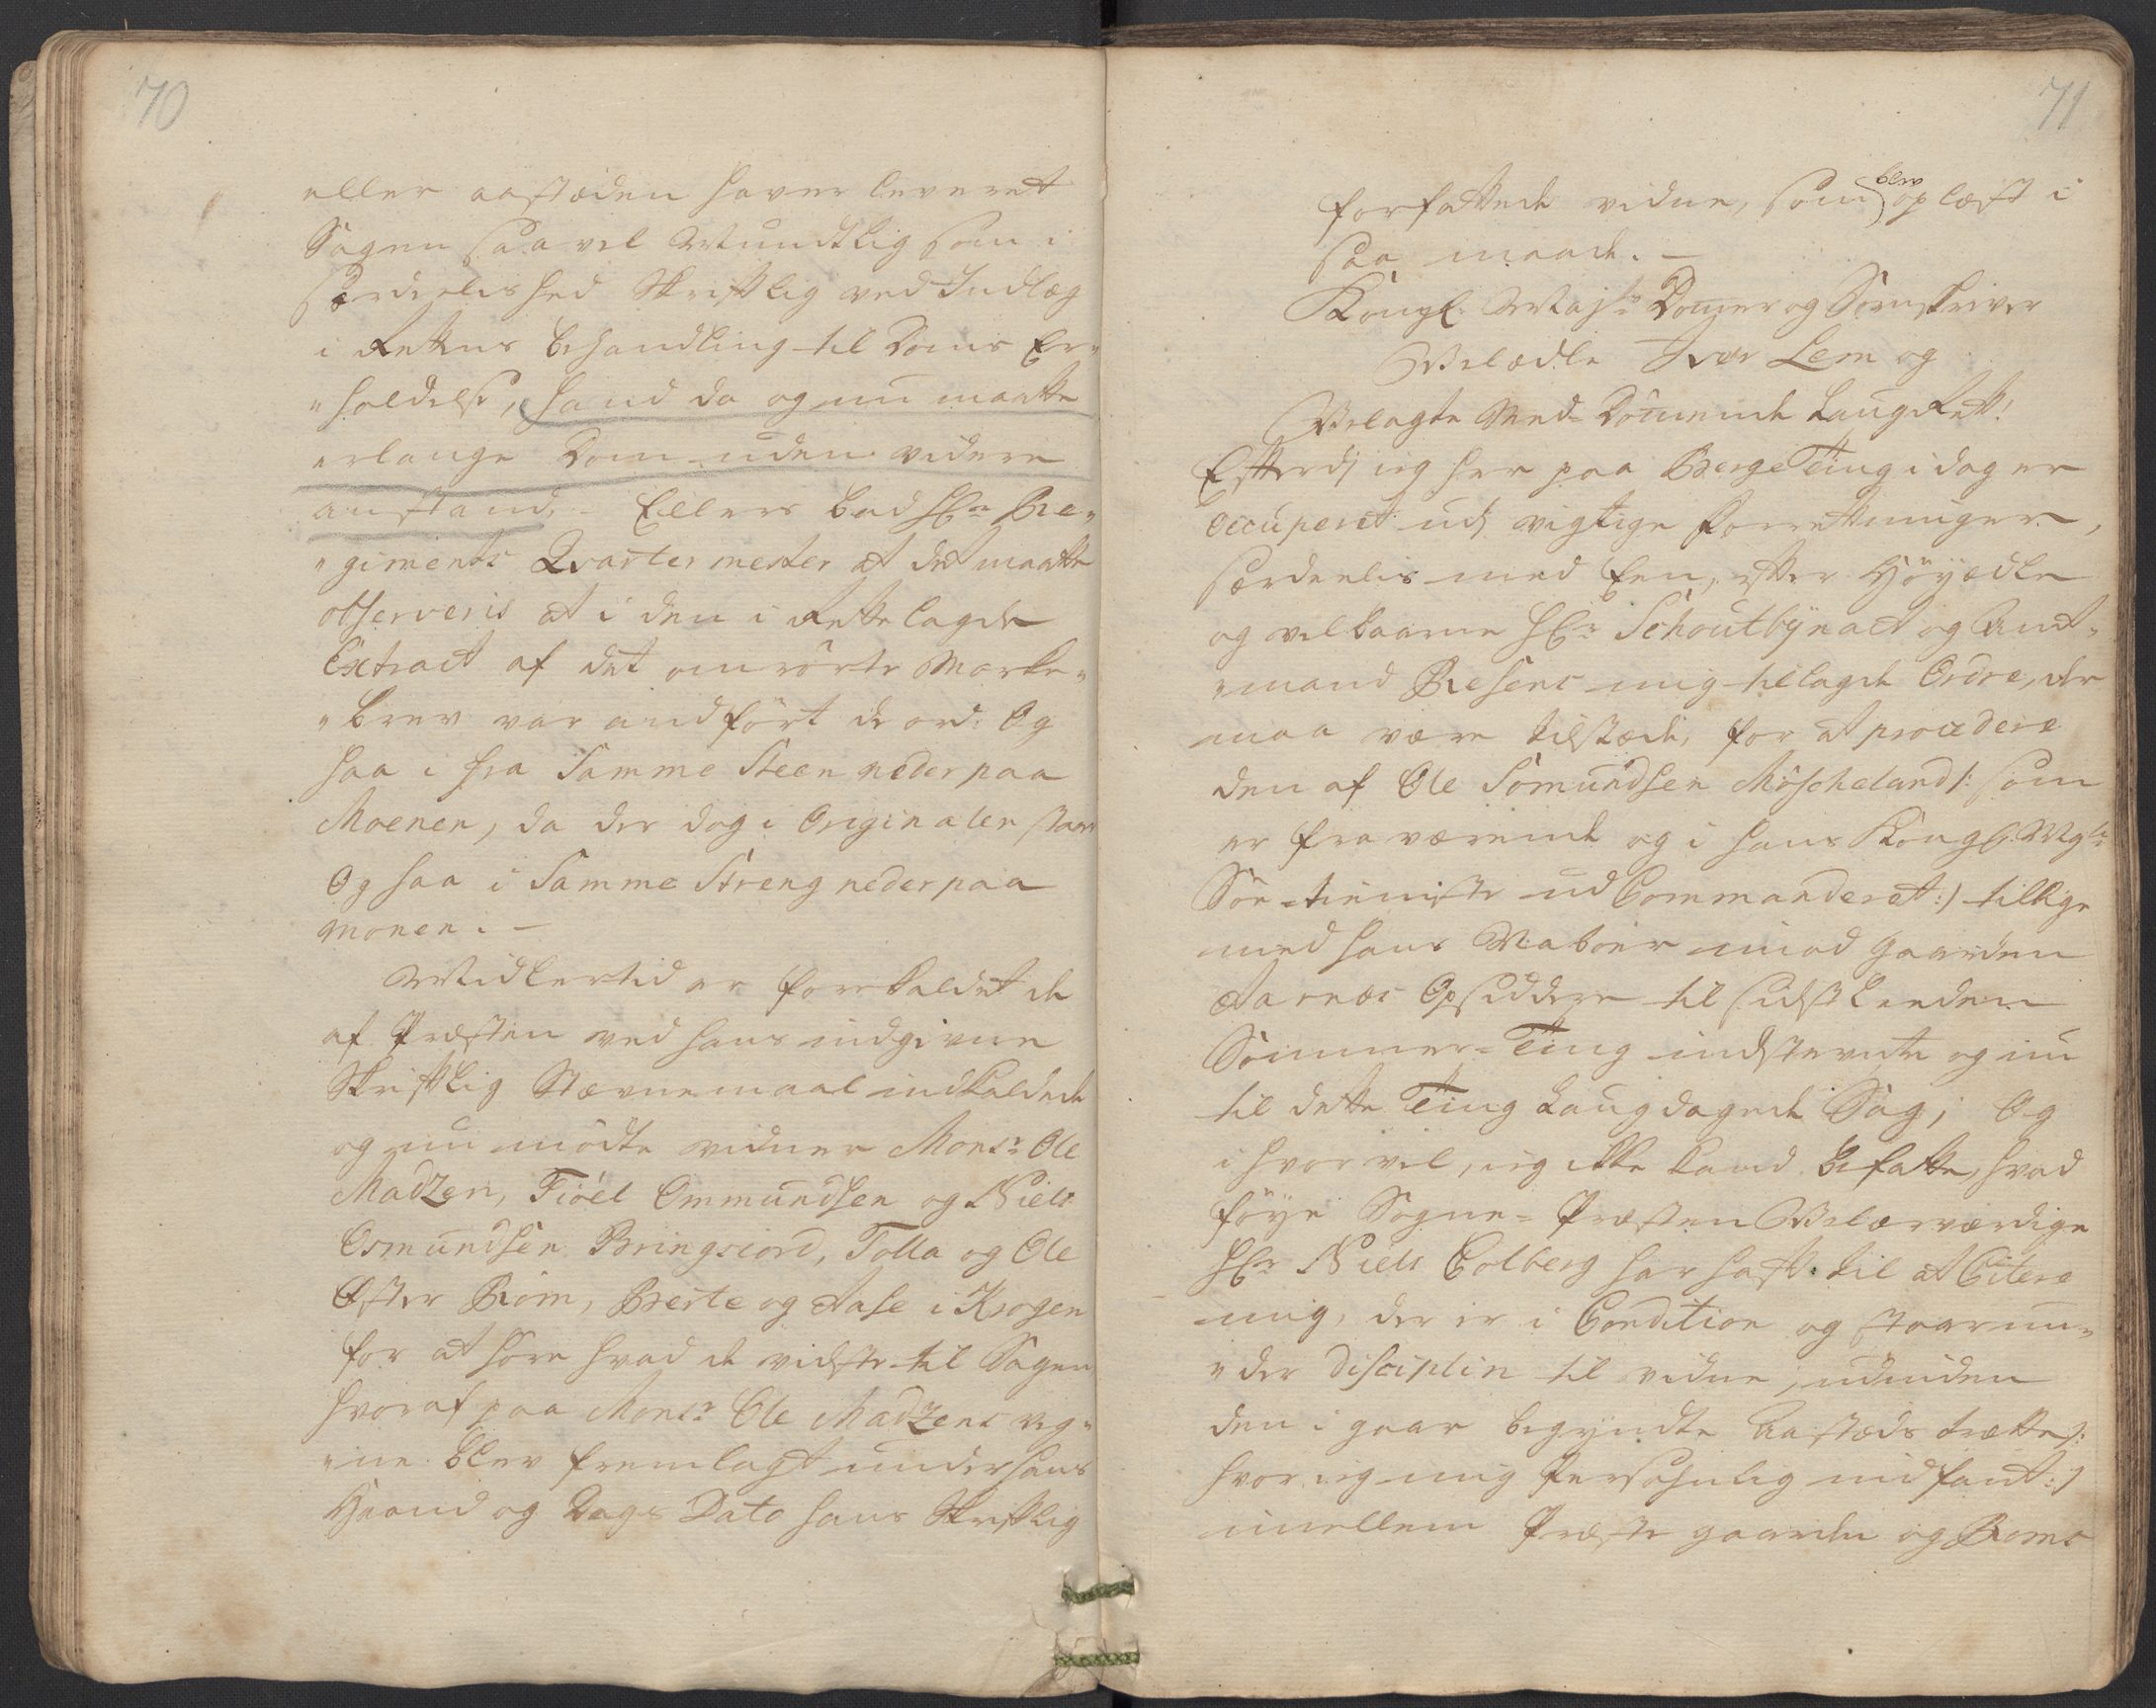 70
eller aastæden haver leveret
Sagen saavel Mundtlig som i
særdeelished Skriftlig ved Indlæg
i Rettens behandling til Doms Er„
„holdelse, hand da og nu maatte
erlange Dom uden videre
anstand, - Ellers bad Hr: Re„
„giments Qvarter mester at det maatte
observeris at i den i Rette lagde
Extract af det omrörte Marke„
„brev var andført de ord: Og
saa i fra Samme Steen neder paa
Moenen, da der dog i Originalen staar
Og saa i Samme Streng neder paa
monen. -
Midlertid er forekaldet de
af Præsten ved hans indgivne
Skriftlig Stævnemaal indkaldede
og nu mödte vidner Monsr: Ole
Madzen, Fiöel Ommundsen og Niels
Osmundsen Bringsiord, Tolla og Ole
Øster Röm, Berte og Aase i Krogen
for at höre hvad de vidste til Sagen
hvoraf paa Monsr: Ole Madzens veg„
„ne blev fremlagt under hans
Haand og Dags Dato hans Skriftlig
71
forfattede vidne, som blev oplæst i
saa maade. -
Kongl: Mayts: Domer og Sornskriver
Velædle Iver Lem og
Velagte Med-Dömmende Laug Rett!
Efterdj ieg her paa Berge Ting i dag er
occuperet udj vigtige Forretninger,
særdeelis med Een, efter Höyædle
og velbaarne Hr: Schoutbÿnact og Amt„
„mand Resens mig tillagde Ordre, der
maa være tilstæde, for at procedere
den af Ole Somundsen Möscheland /: som
er fraværende og i hans Kongl: Mayts:
Söe-tieniste ud Commanderet :/ tillige
med hans Naboer imod Gaarden
Aarnæs Opsiddere til sidst leeden
Sommer-Ting indstevnte og nu
til dette Ting Laugdagede Sag; Og
i hvor vel, ieg ikke kand befatte, hvad
föye Sogne-Præsten Velærværdige
Hr: Niels Colberg har haft til at Citere
mig, der er i Condition og staar un„
„der Disciplin til vidne, udinden
den i gaar begyndte Aastæds trætte /:
hvor ieg mig Persohnlig indfant :/
imellem Præste gaarden og Roms